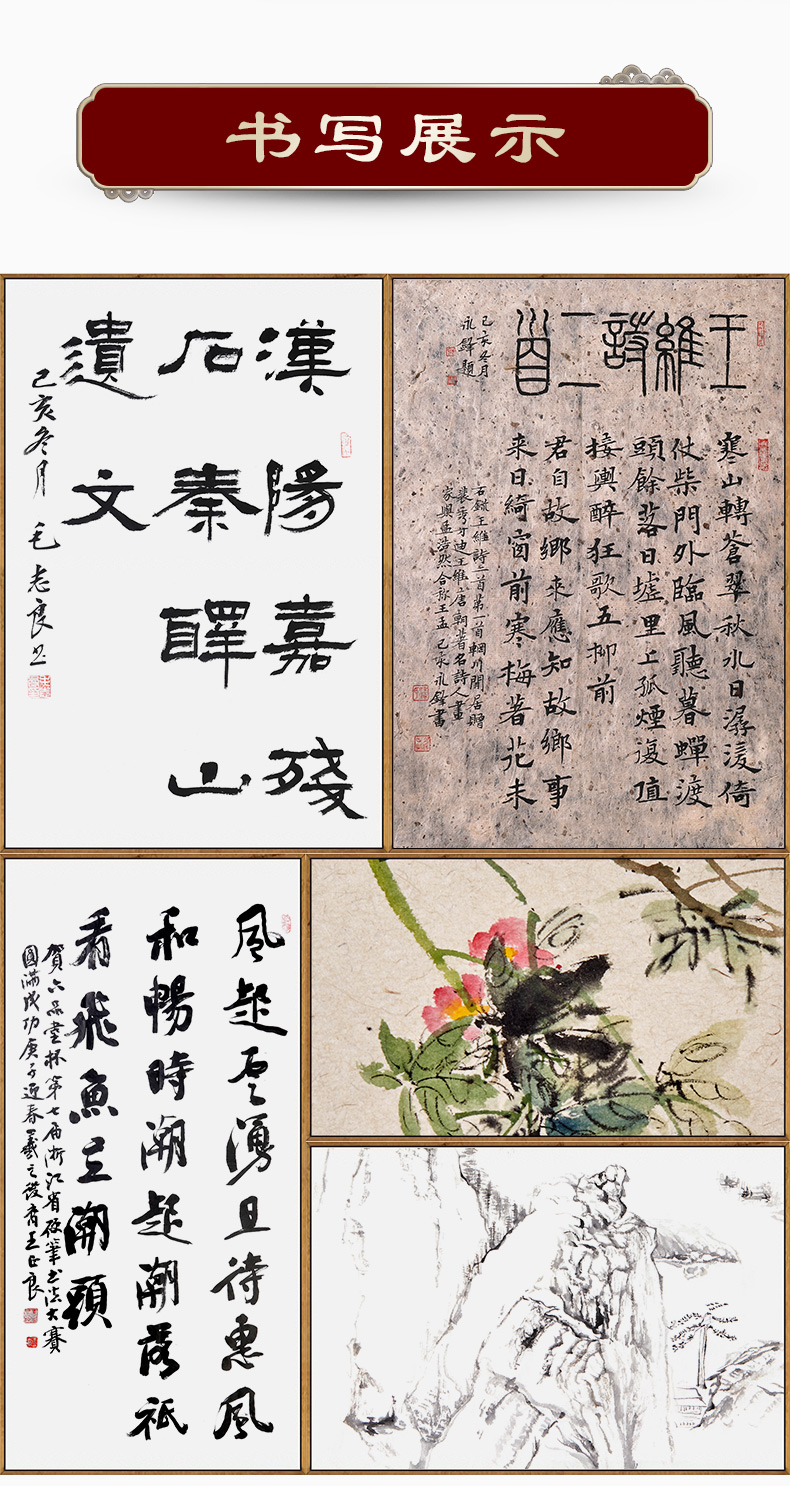 书写展示
漢陽嘉殘
石秦驛山
遺文
己亥冬月 毛志良书
王維詩二首
己亥冬月
永鋒題
寒山轉蒼翠秋水日潺湲倚
仗柴門外臨風聽暮蟬渡
頭餘落日墟里上孤煙復值
接輿醉狂歌五柳前
君自故鄉來應知故鄉事
來日綺窗前寒梅著花未
右錄王維詩二首第一首輞川閒居贈
裴秀才迪王維唐朝著名詩人畫
家與孟浩然合称王孟 己亥永鋒書
風起雲湧且待惠風
和暢時潮起潮落祇
看飛魚立潮頭
賀六品堂杯第七届浙江省硬笔书法大賽
圆满成功庚子迎春羲之後裔王正良